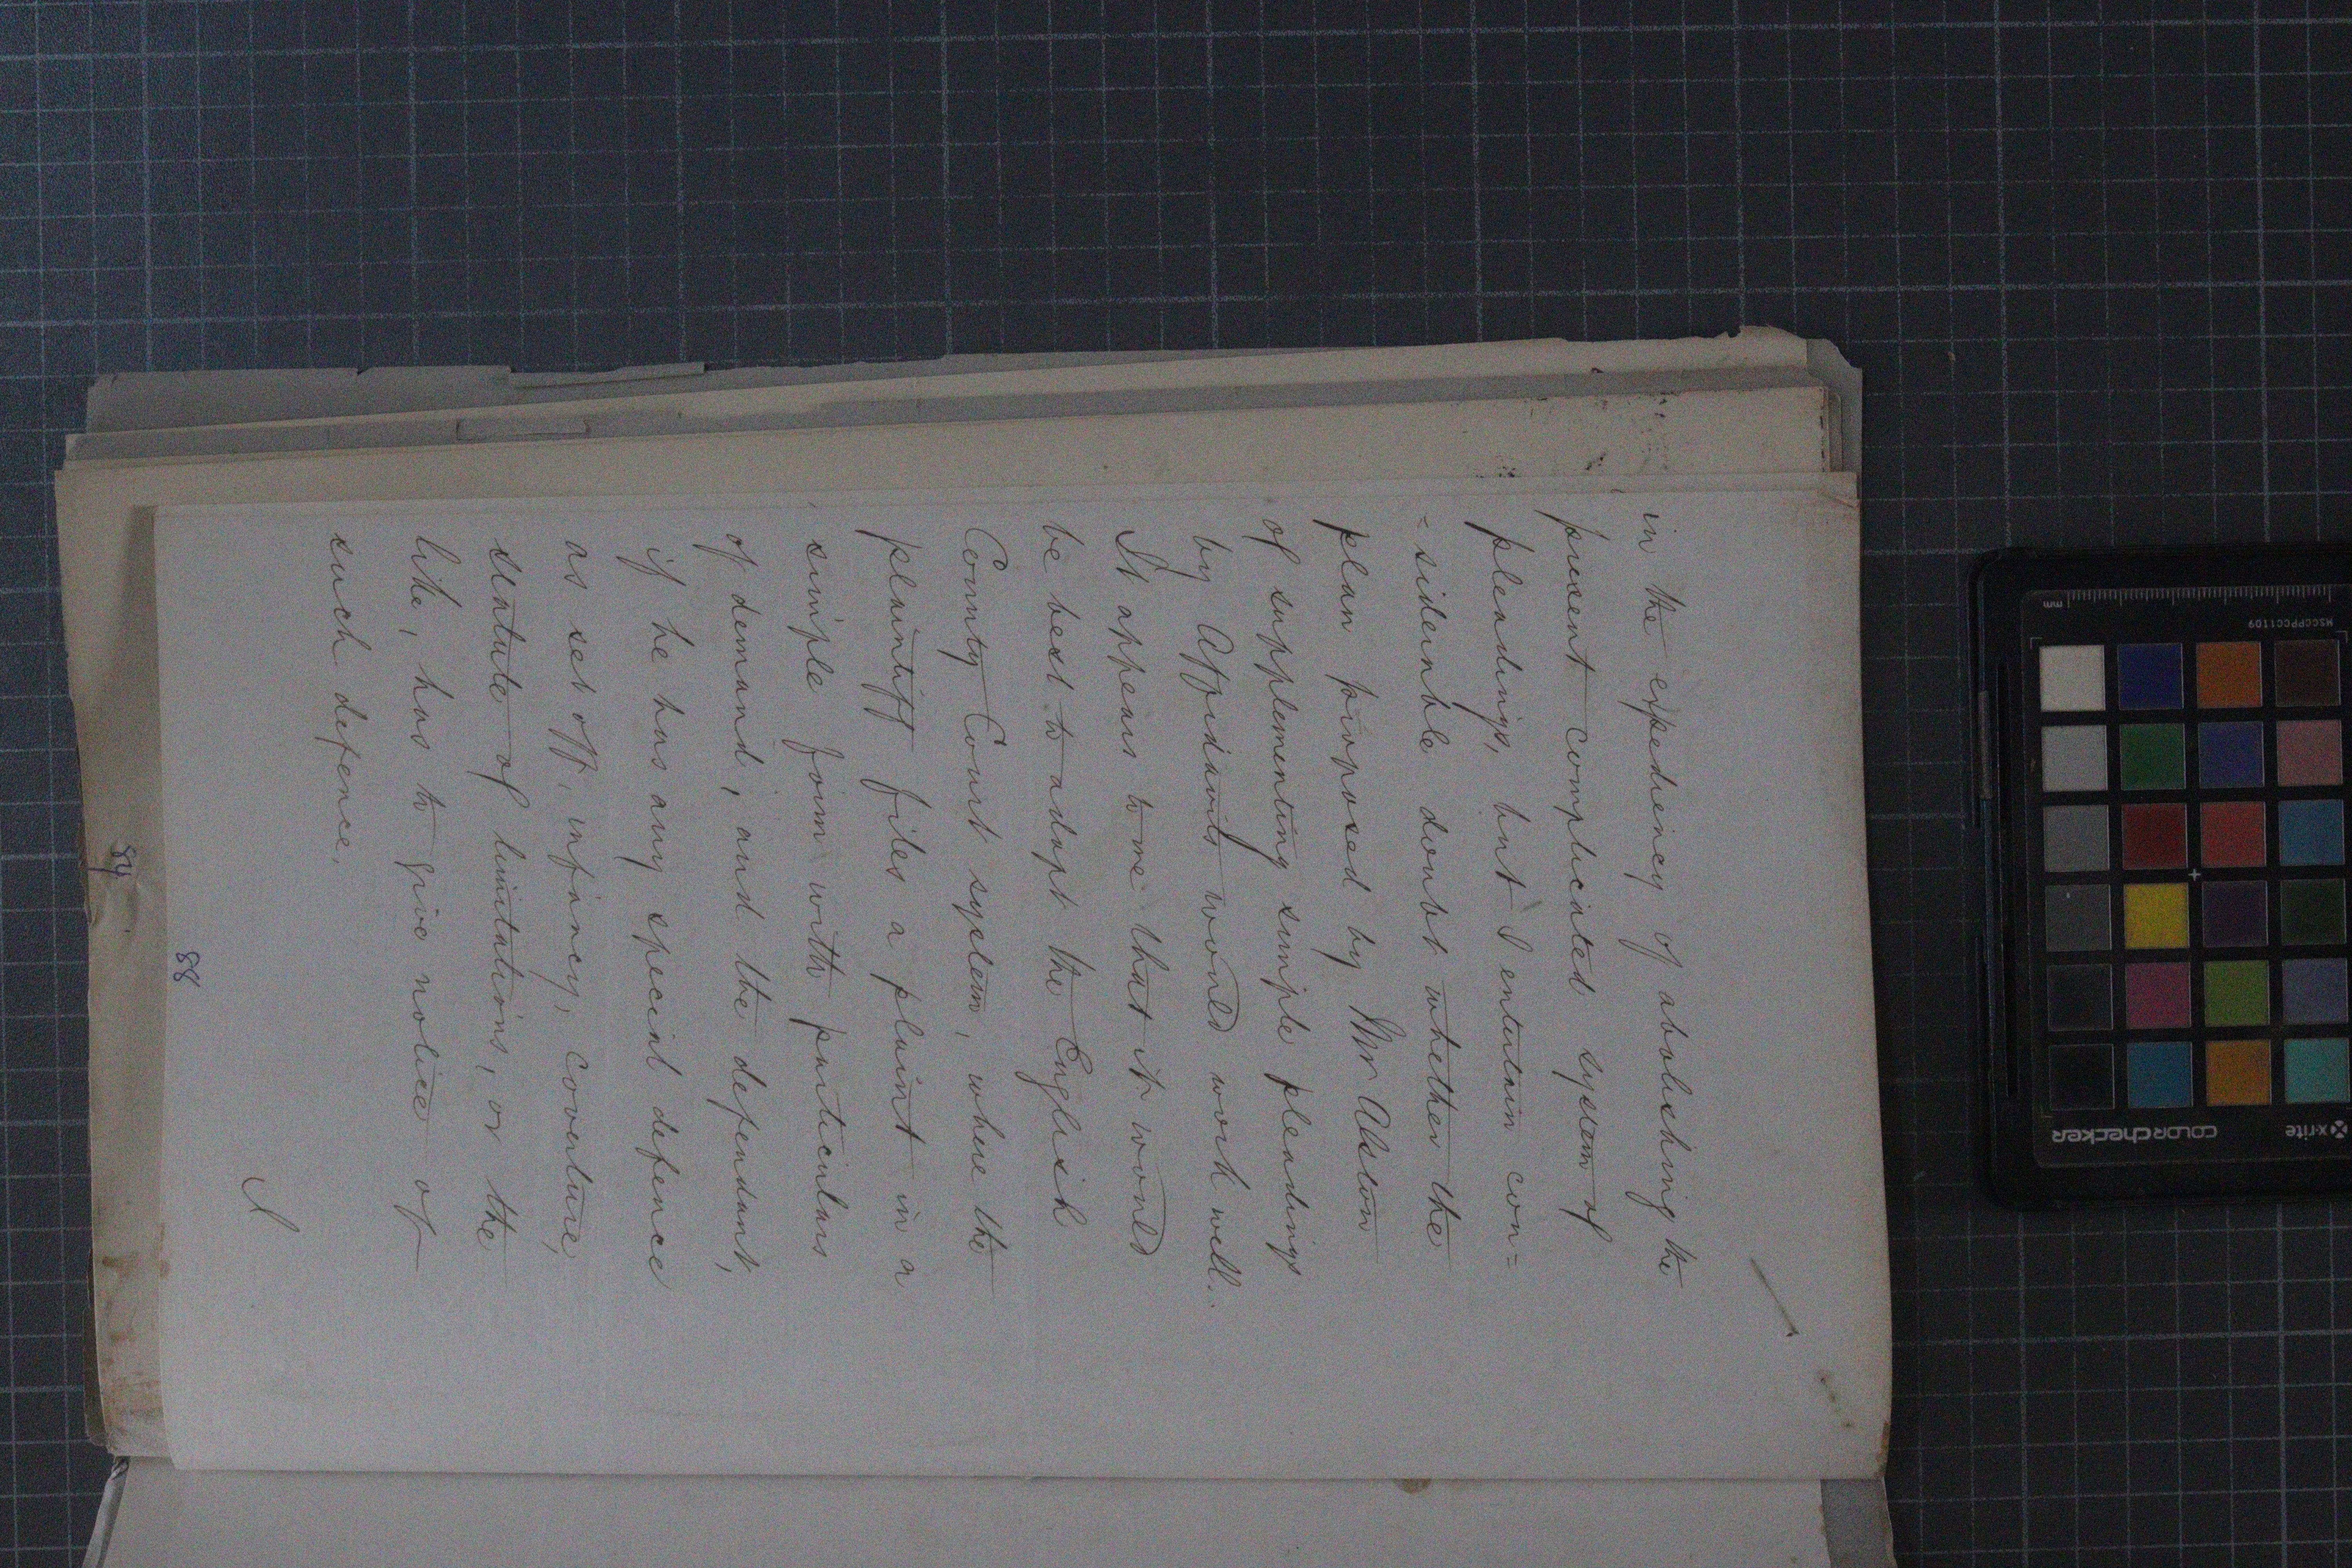 in the expediency of abolishing the
present complicated system of
pleadings, but I entertain con=
=siderable doubt whether the
plan proposed by Mr Alston
of supplementing simple pleadings
by Affidavits would work well.
It appears to me that it would
be best to adopt the English
County Court system, where the
plaintiff files a plaint in a
simple form with particulars
of demand, and the defendant,
if he has any special defence
as set off, infancy, coverture,
statute of limitations, or the
like, has to give notice of
such defence.
I
88
84
x-rite
colorchecker
MSCCPPCC1109
mm